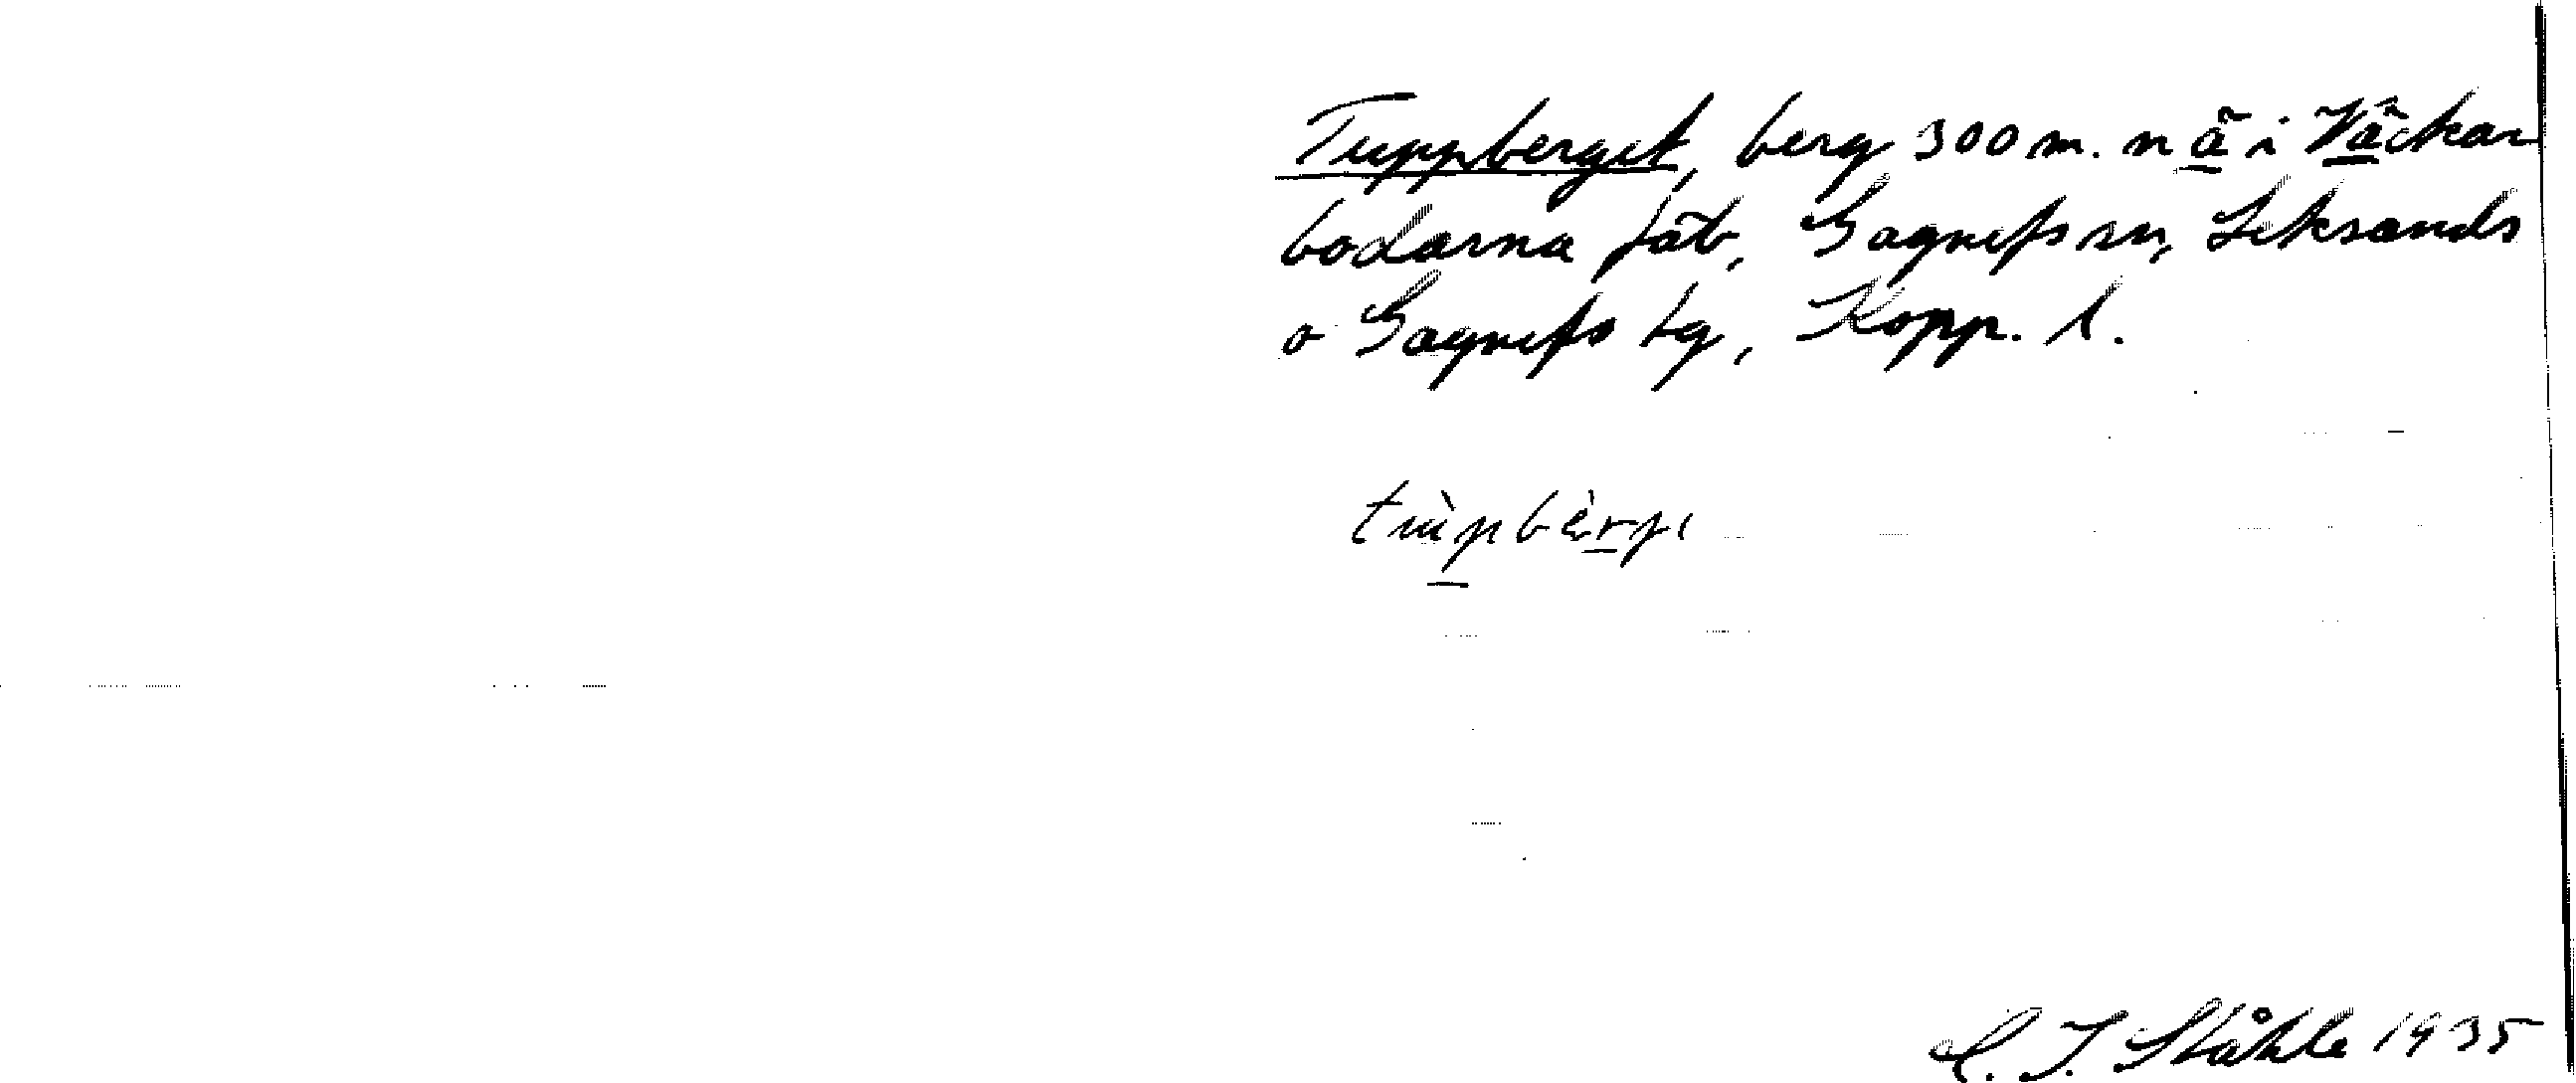 Tuppberget, berg 300 m. nä i Väckar
bodarna fäb, Gagnefs sn, Leksands
o Gagnefs tg, Kopp. l.
C. I. Ståhle 1935